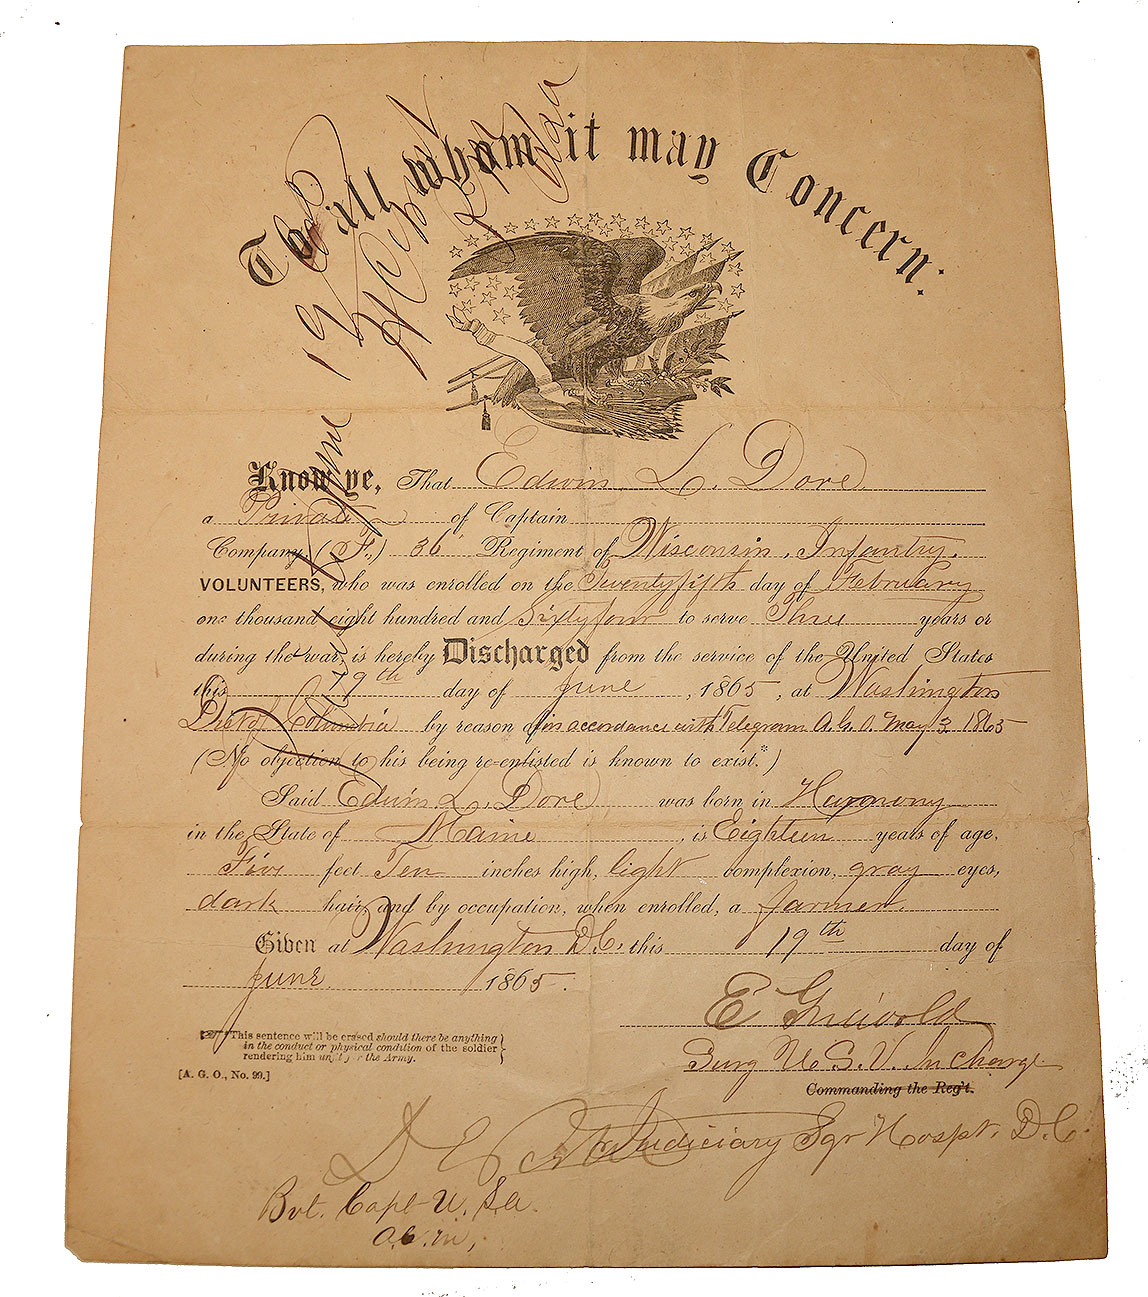 To all whom it may Concern:
Know ye, That Edwin L. Dore
a Private of Captain
Company, (F.,) 36th Regiment of Wisconsin Infantry.
VOLUNTEERS, who was enrolled on the Twentyfifth day of February
one thousand eight hundred and Sixtyfour to serve Three years or
during the war, is hereby Discharged from the service of the United States
this 19th day of June, 1865, at Washington
Dist of Columbia by reason of in accordance with Telegram A.G.O. May 3. 1865
(No objection to his being re-enlisted is known to exist.*)
Said Edwin L. Dore was born in Harmony
in the State of Maine, is Eighteen years of age,
Five feet Ten inches high, light complexion, gray eyes,
dark hair, and by occupation, when enrolled, a farmer.
Given at Washington D.C. this 19th day of
June 1865.
E Griswold
Surg U.S.V. In Charge
Commanding the Reg't.
This sentence will be erased should there be anything
in the conduct or physical condition of the soldier
rendering him unfit for the Army.
[A. G. O., No. 99.]
Judiciary Sqr Hospt. D.C.
Bvt. Capt U.S.A.
A.C.M.
June 19